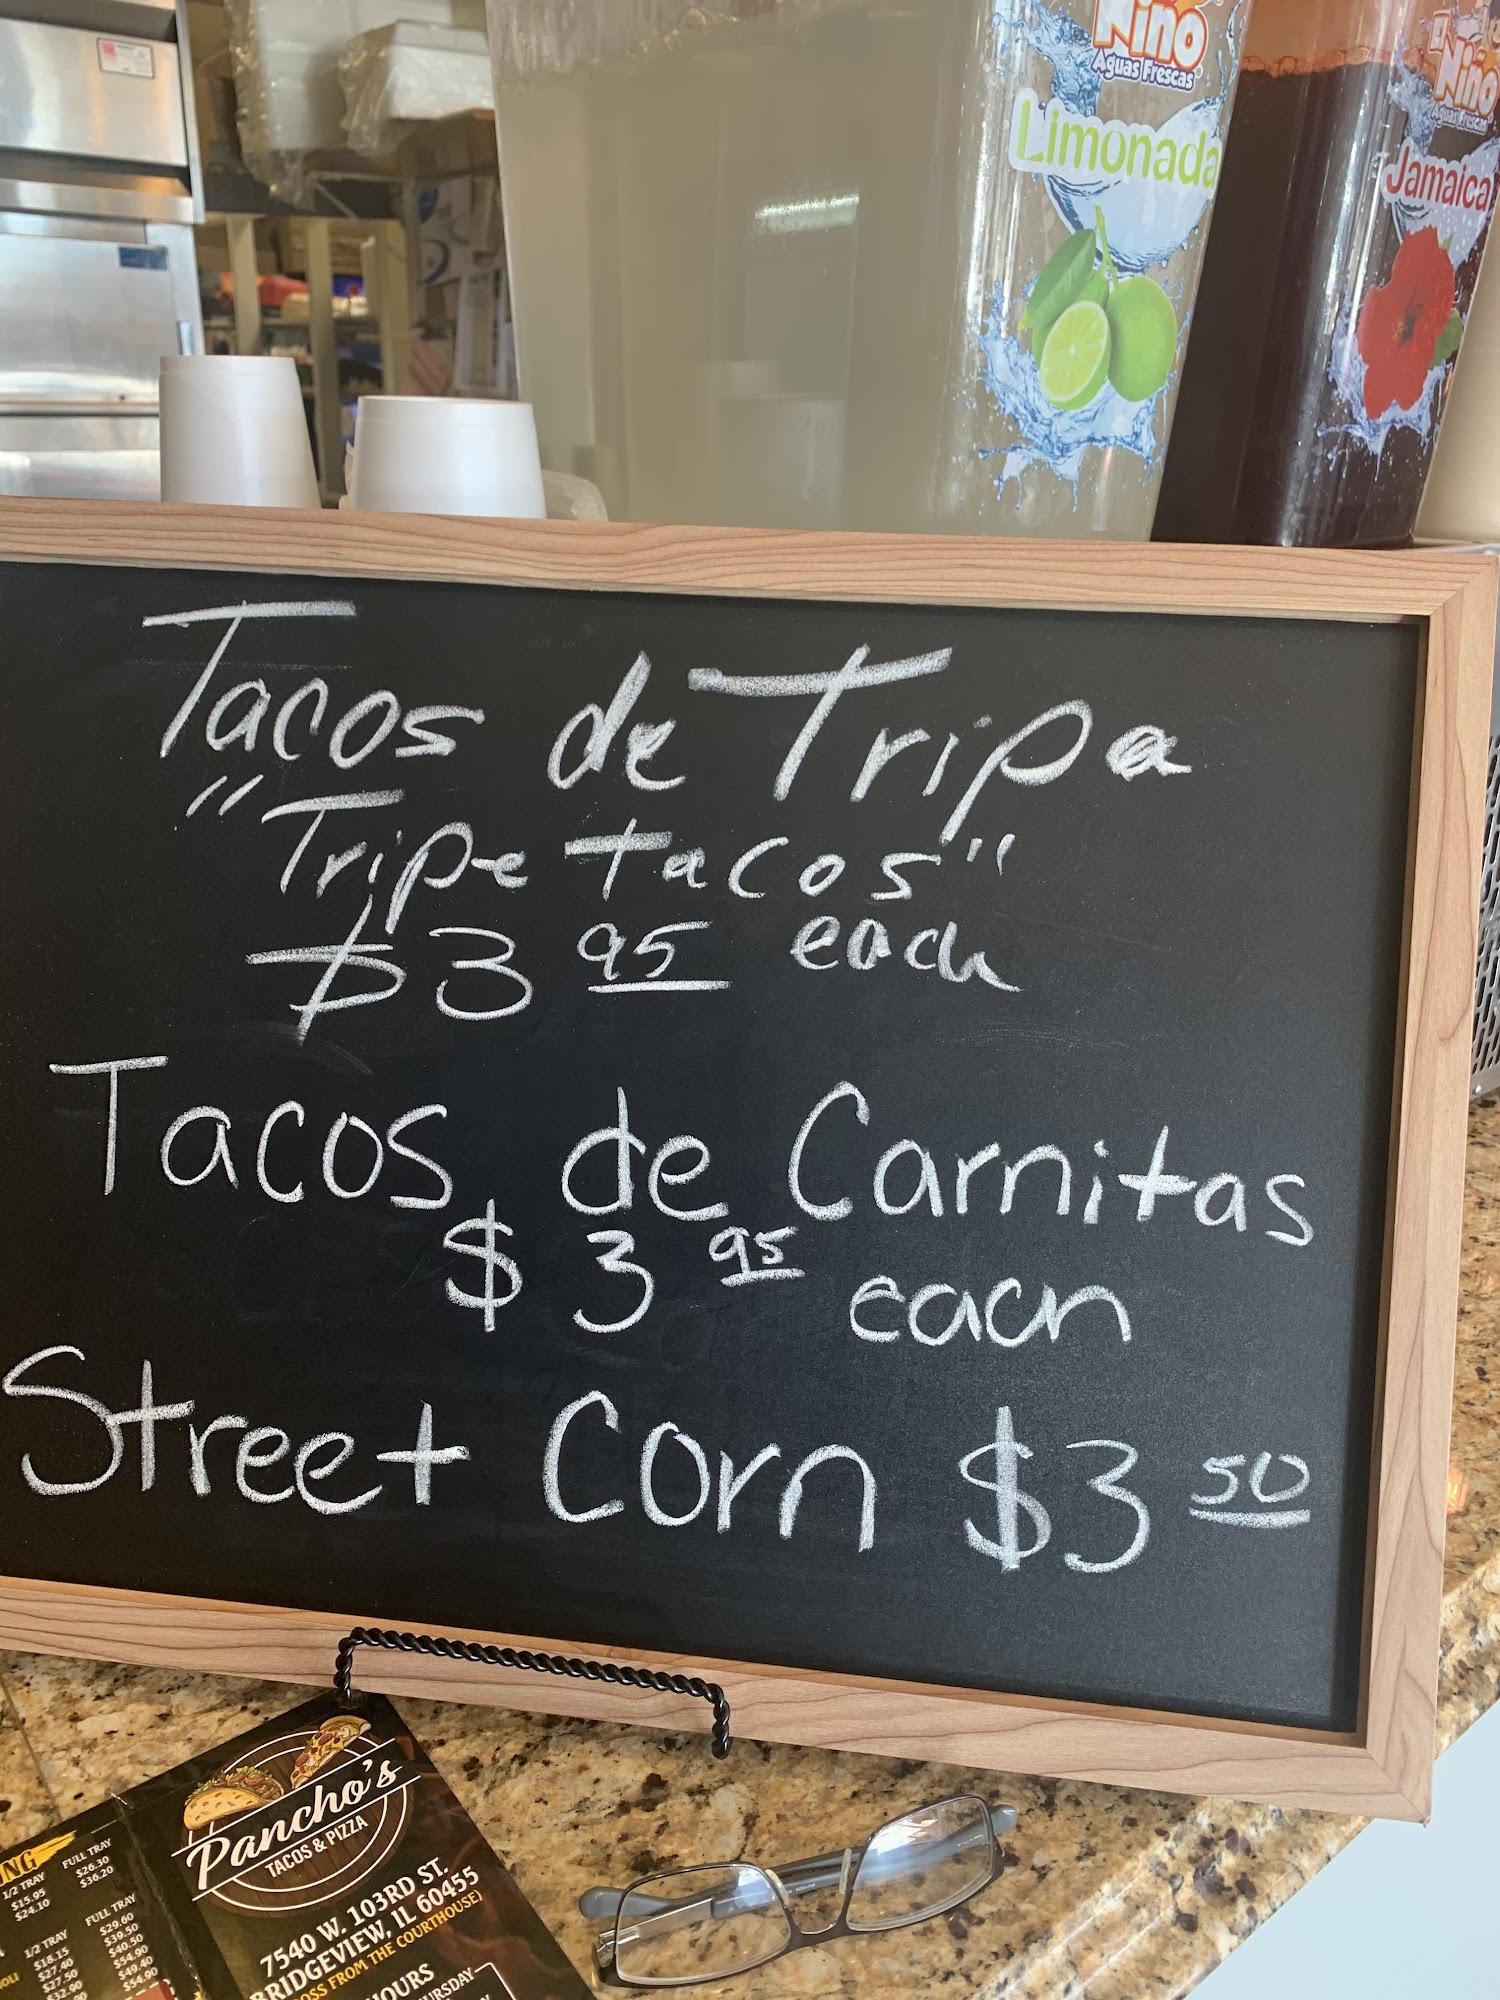 Niño
Aguas Frescas
Limonada
Niño
Aguas Frescas
Jamaica
Tacos de Tripa
"Tripe tacos"
$3 95 each
Tacos de Carnitas
$3 95 each
Street Corn $3 50
Pancho's
TACOS & PIZZA
7540 W. 103RD ST.
BRIDGEVIEW, IL 60455
OSS FROM THE COURTHOUSE)
HOURS
URSDAY
NG
1/2 TRAY FULL TRAY
$15.95 $26.30
$24.10 $36.20
1/2 TRAY FULL TRAY
$18.15 $29.60
$27.40 $39.50
$27.50 $40.50
$32.90 $54.90
$49.40
$54.90